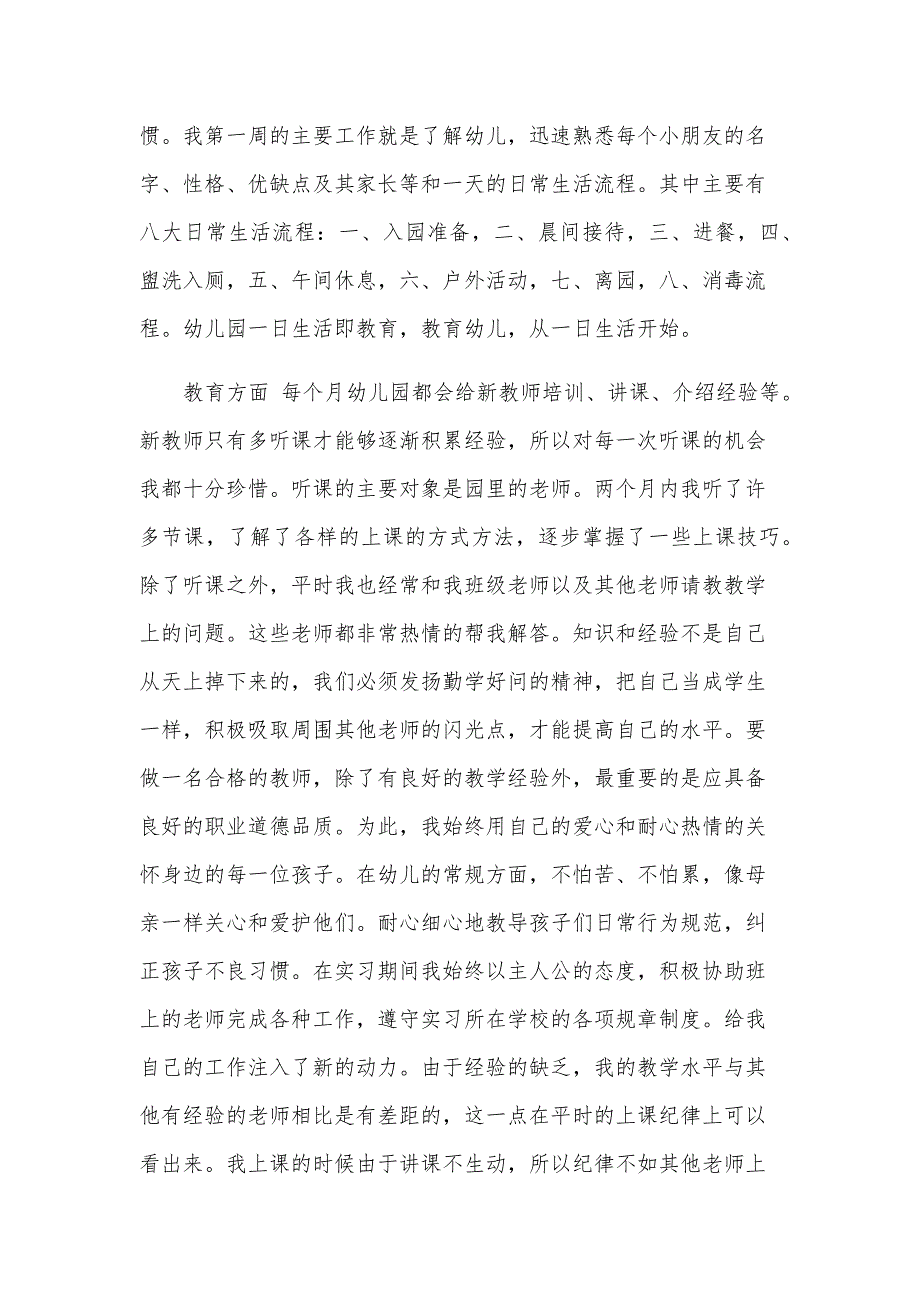 惯。我第一周的主要工作就是了解幼儿，迅速熟悉每个小朋友的名
字、性格、优缺点及其家长等和一天的日常生活流程。其中主要有
八大日常生活流程：一、入园准备，二、晨间接待，三、进餐，四、
盥洗入厕，五、午间休息，六、户外活动，七、离园，八、消毒流
程。幼儿园一日生活即教育，教育幼儿，从一日生活开始。
教育方面 每个月幼儿园都会给新教师培训、讲课、介绍经验等。
新教师只有多听课才能够逐渐积累经验，所以对每一次听课的机会
我都十分珍惜。听课的主要对象是园里的老师。两个月内我听了许
多节课，了解了各样的上课的方式方法，逐步掌握了一些上课技巧。
除了听课之外，平时我也经常和我班级老师以及其他老师请教教学
上的问题。这些老师都非常热情的帮我解答。知识和经验不是自己
从天上掉下来的，我们必须发扬勤学好问的精神，把自己当成学生
一样，积极吸取周围其他老师的闪光点，才能提高自己的水平。要
做一名合格的教师，除了有良好的教学经验外，最重要的是应具备
良好的职业道德品质。为此，我始终用自己的爱心和耐心热情的关
怀身边的每一位孩子。在幼儿的常规方面，不怕苦、不怕累，像母
亲一样关心和爱护他们。耐心细心地教导孩子们日常行为规范，纠
正孩子不良习惯。在实习期间我始终以主人公的态度，积极协助班
上的老师完成各种工作，遵守实习所在学校的各项规章制度。给我
自己的工作注入了新的动力。由于经验的缺乏，我的教学水平与其
他有经验的老师相比是有差距的，这一点在平时的上课纪律上可以
看出来。我上课的时候由于讲课不生动，所以纪律不如其他老师上